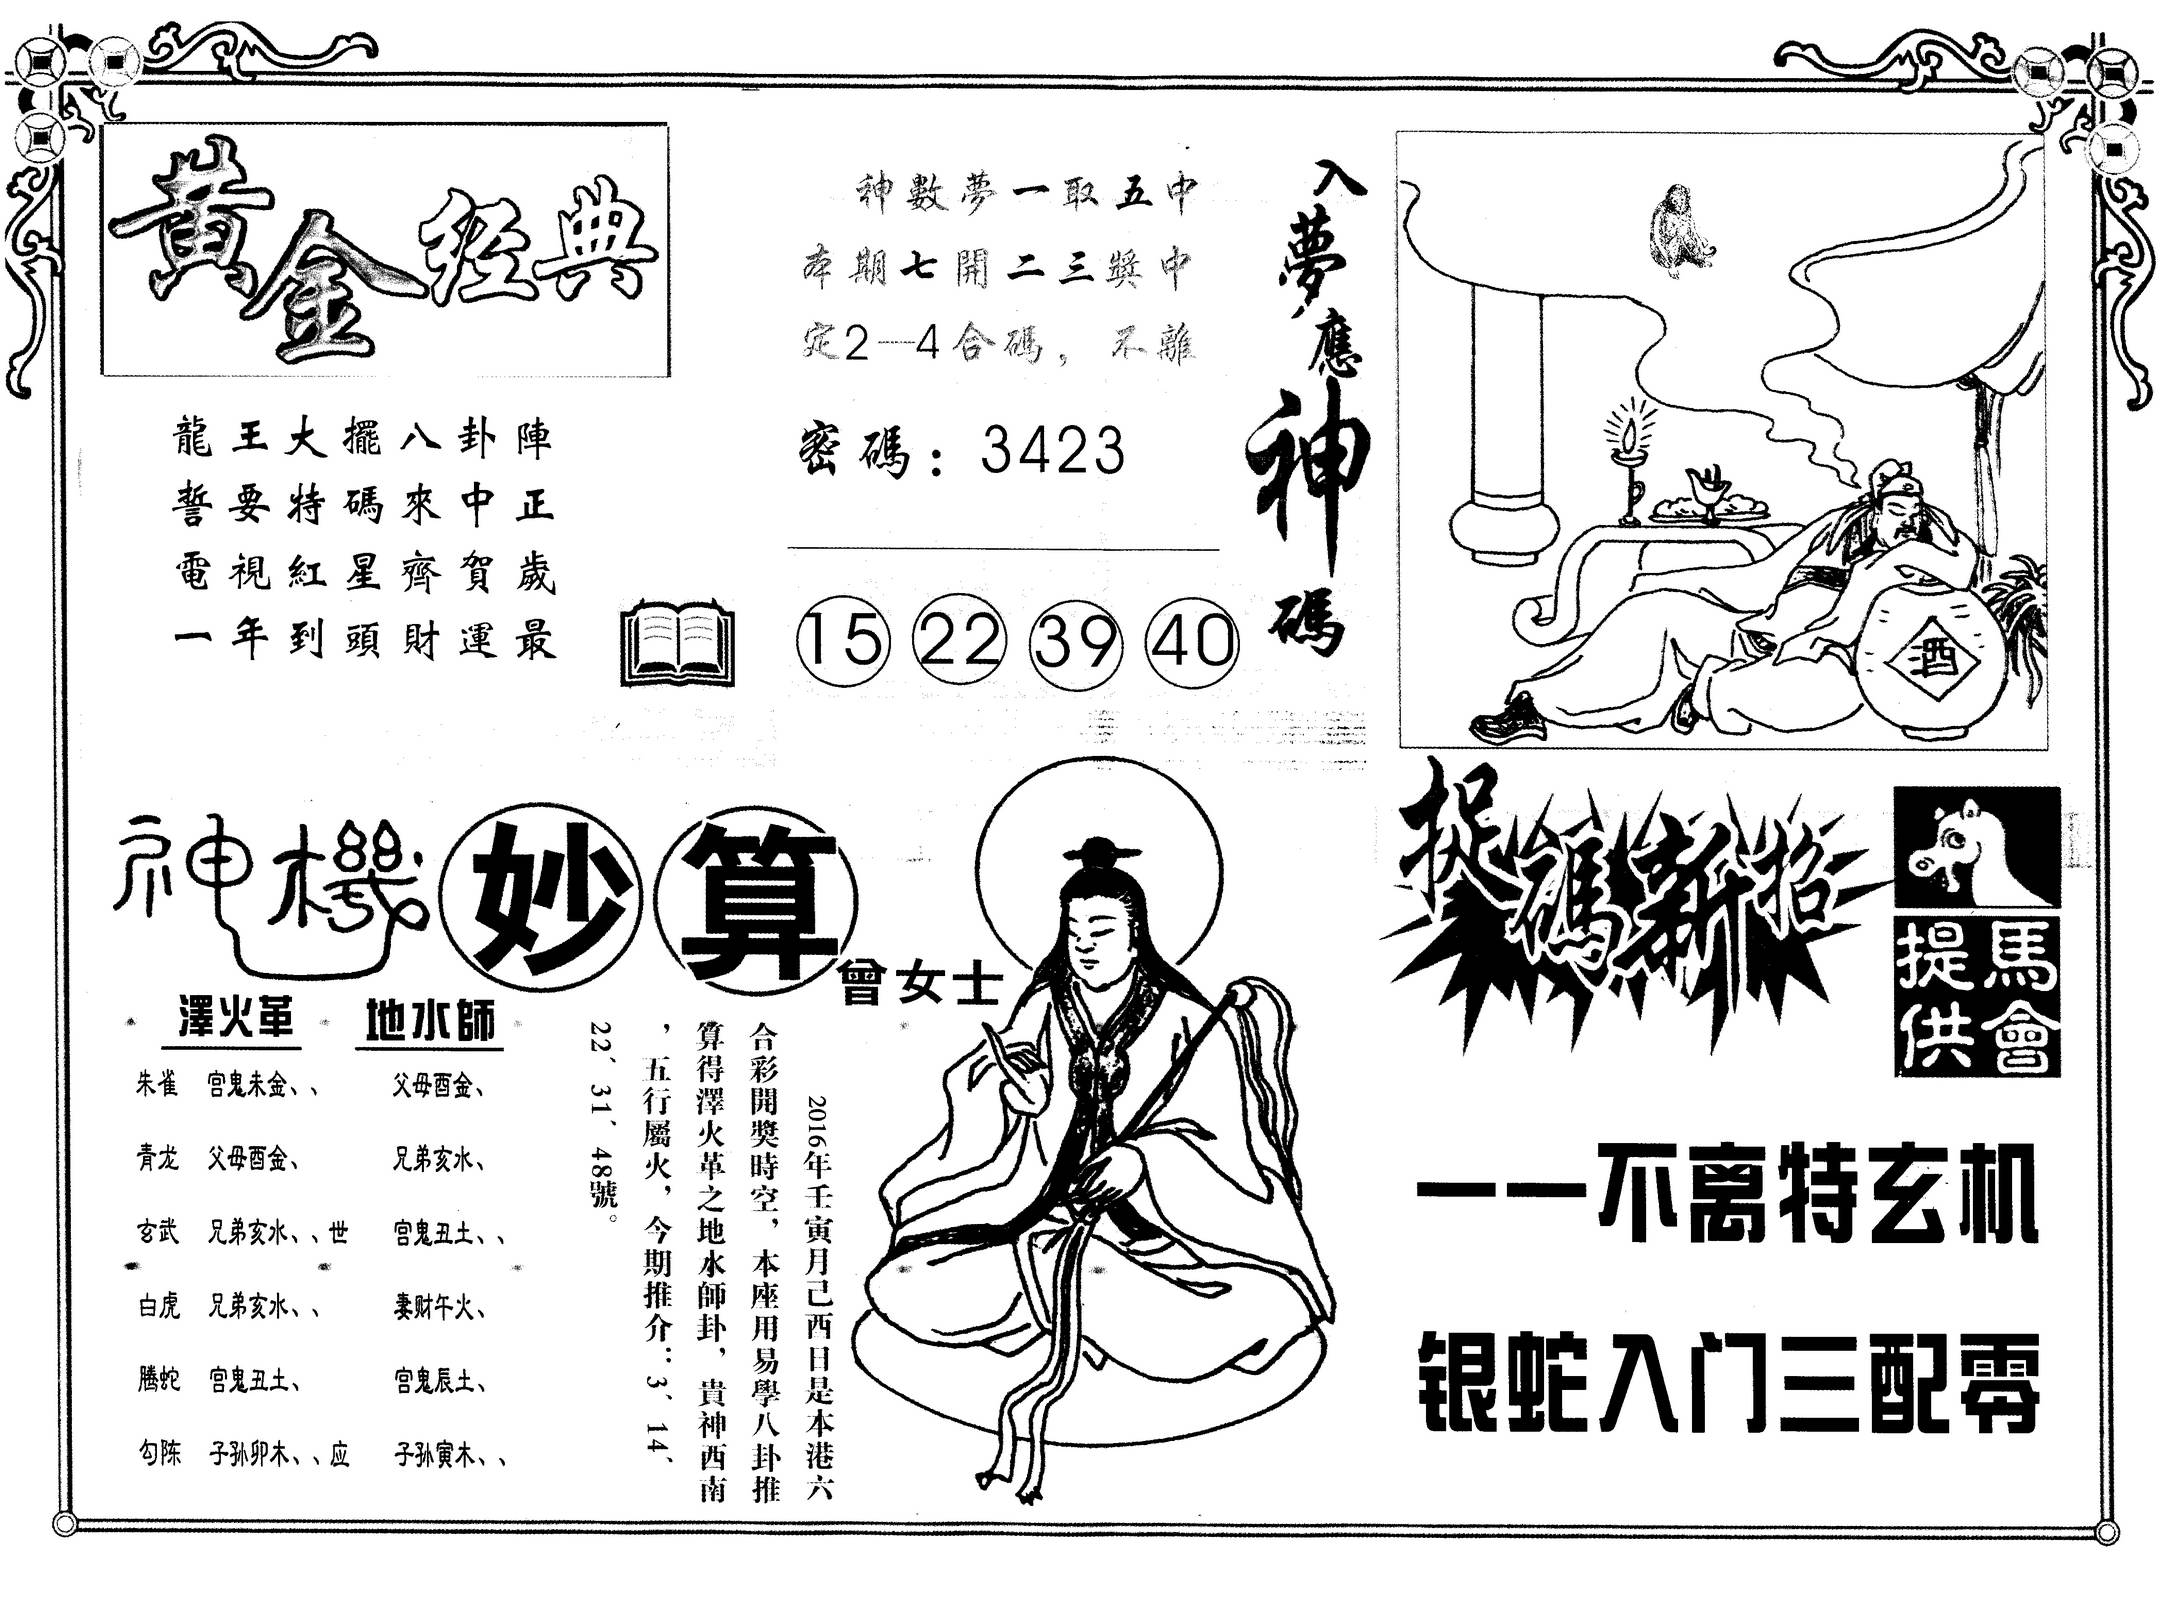 黄金经典
龍王大擺八卦陣
誓要特碼來中正
電視紅星齊賀歲
一年到頭財運最
神數夢一取五中
本期七開二三獎中
定2—4合碼，不離
密碼：3423
15 22 39 40
入夢應神碼
酒
神機妙算
曾女士
澤火革 地水師
朱雀 宫鬼未金、、 父母酉金、
青龙 父母酉金、 兄弟亥水、
玄武 兄弟亥水、、世 宫鬼丑土、、
白虎 兄弟亥水、、 妻财午火、
腾蛇 宫鬼丑土、 宫鬼辰土、
勾陈 子孙卯木、、应 子孙寅木、、
2016年壬寅月己酉日是本港六
合彩開獎時空，本座用易學八卦推
算得澤火革之地水師卦，貴神西南
，五行屬火，今期推介：3、14、
22、31、48號。
捉碼新招
馬會提供
一一不离特玄机
银蛇入门三配零